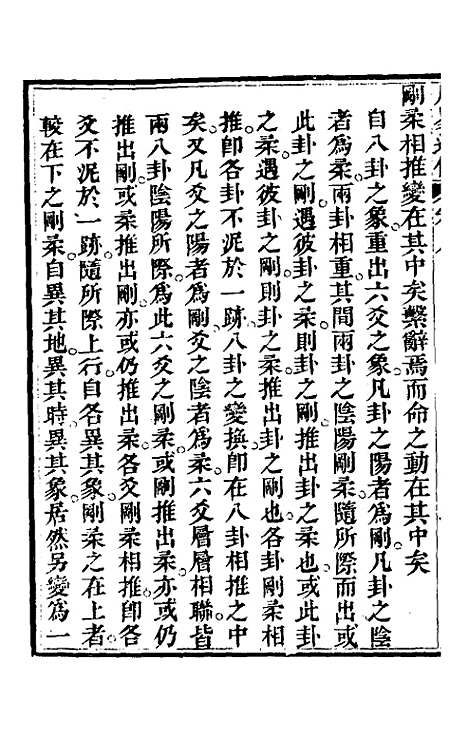 剛柔相推變在其中矣繫辭焉而命之動在其中矣
自八卦之象重出六爻之象凡卦之陽者爲剛凡卦之陰
者爲柔兩卦相重其間兩卦之陰陽剛柔隨所際而出或
此卦之剛遇彼卦之柔則卦之剛推出卦之柔也或此卦
之柔遇彼卦之剛則卦之柔推出卦之剛也各卦剛柔相
推卽各卦不泥於一跡八卦之變換卽在八卦相推之中
矣又凡爻之陽者爲剛爻之陰者爲柔六爻層層相聯皆
兩八卦陰陽所際爲此六爻之剛柔或剛推出柔亦或仍
推出剛或柔推出剛亦或仍推出柔各爻剛柔相推卽各
爻不泥於一跡隨所際上行自各異其象剛柔之在上者
較在下之剛柔自異其地異其時異其象居然另變爲一